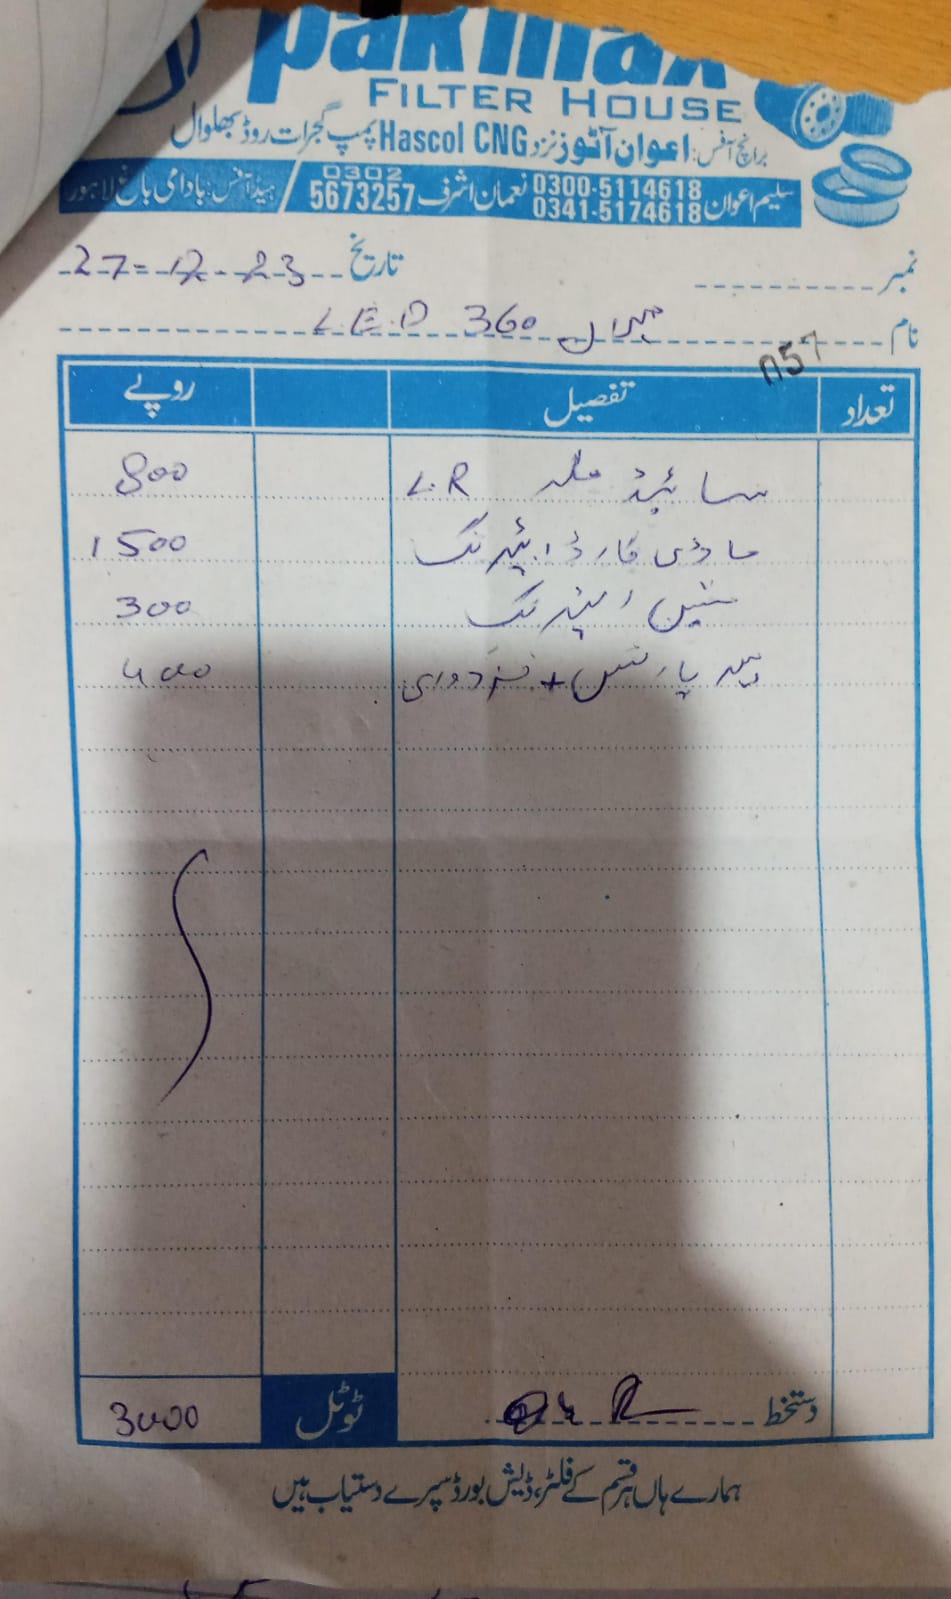 pakmax
FILTER HOUSE
برانچ آفس: اعوان آٹوز نزد Hascol CNG پمپ گجرات روڈ بھلوال
سلیم اعوان 0300-5114618 0341-5174618 نعمان اشرف 0302 5673257 / ہیڈ آفس: بادامی باغ لاہور
نمبر تاریخ 27-12-23
نام L.E.D 360
تعداد تفصیل روپے
سائیڈ L.R 800
وائیرنگ 1500
300
پارٹس + مزدوری 400
دستخط ٹوٹل 3000
ہمارے ہاں ہر قسم کے فلٹر، ڈیش بورڈ سپرے دستیاب ہیں